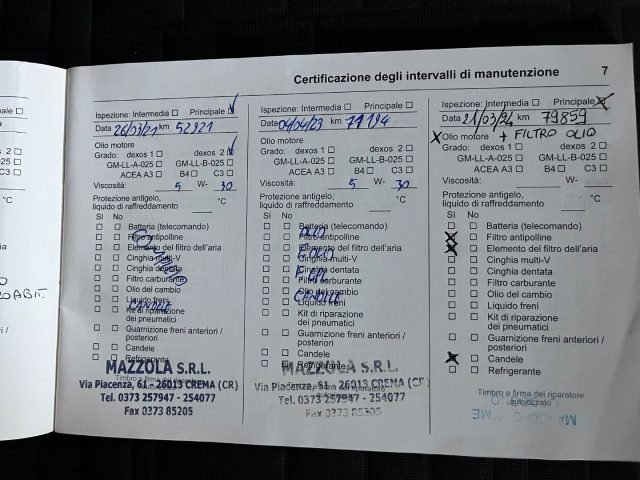 Certificazione degli intervalli di manutenzione 7
Ispezione: Intermedia Principale
Data 26/03/21 km 52921
Olio motore
Grado: dexos 1 dexos 2
GM-LL-A-025 GM-LL-B-025
ACEA A3 B4 C3
Viscosità: 5 W- 30
Protezione antigelo,
liquido di raffreddamento °C
Sì No
Batteria (telecomando)
Filtro antipolline
Elemento del filtro dell'aria
Cinghia multi-V
Cinghia dentata
Filtro carburante
Olio del cambio
Liquido freni
CANDELE
Kit di riparazione
dei pneumatici
Guarnizione freni anteriori /
posteriori
Candele
Refrigerante
MAZZOLA S.R.L.
Timbro e firma del riparatore
Via Piacenza, 61 - 26013 CREMA (CR)
Tel. 0373 257947 - 254077
Fax 0373 85205
Ispezione: Intermedia Principale
Data 04/04/23 km 71194
Olio motore
Grado: dexos 1 dexos 2
GM-LL-A-025 GM-LL-B-025
ACEA A3 B4 C3
Viscosità: 5 W- 30
Protezione antigelo,
liquido di raffreddamento °C
Sì No
Batteria (telecomando)
Filtro antipolline
Elemento del filtro dell'aria
Cinghia multi-V
Cinghia dentata
Filtro carburante
Olio del cambio
Liquido freni
CANDELE
Kit di riparazione
dei pneumatici
Guarnizione freni anteriori /
posteriori
Candele
Refrigerante
MAZZOLA S.R.L.
Via Piacenza, 61 - 26013 CREMA (CR)
Tel. 0373 257947 - 254077
Fax 0373 85205
Ispezione: Intermedia Principale
Data 21/03/24 km 79859
Olio motore + FILTRO OLIO
Grado: dexos 1 dexos 2
GM-LL-A-025 GM-LL-B-025
ACEA A3 B4 C3
Viscosità: W-
Protezione antigelo,
liquido di raffreddamento °C
Sì No
Batteria (telecomando)
Filtro antipolline
Elemento del filtro dell'aria
Cinghia multi-V
Cinghia dentata
Filtro carburante
Olio del cambio
Liquido freni
Kit di riparazione
dei pneumatici
Guarnizione freni anteriori /
posteriori
Candele
Refrigerante
Timbro e firma del riparatore
autorizzato